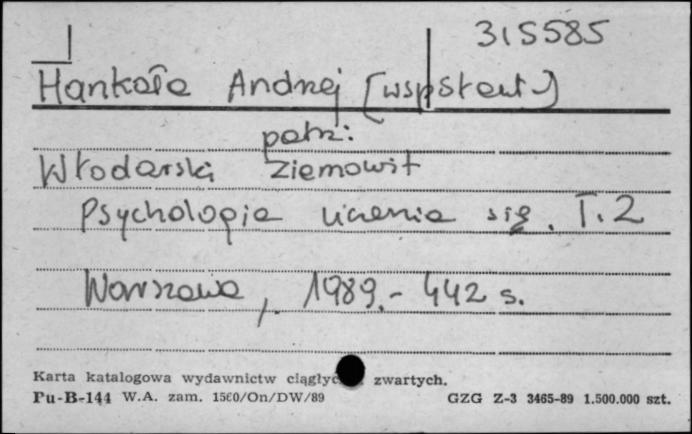 315585
Hankała Andrzej [wspstaut.]
patrz:
Włodarski Ziemowit
Psychologia uczenia się. T. 2
Warszawa, 1989.- 442 s.
Karta katalogowa wydawnictw ciągłyc zwartych.
Pu-B-144 W.A. zam. 1560/On/DW/89 GZG Z-3 3465-89 1.500.000 szt.